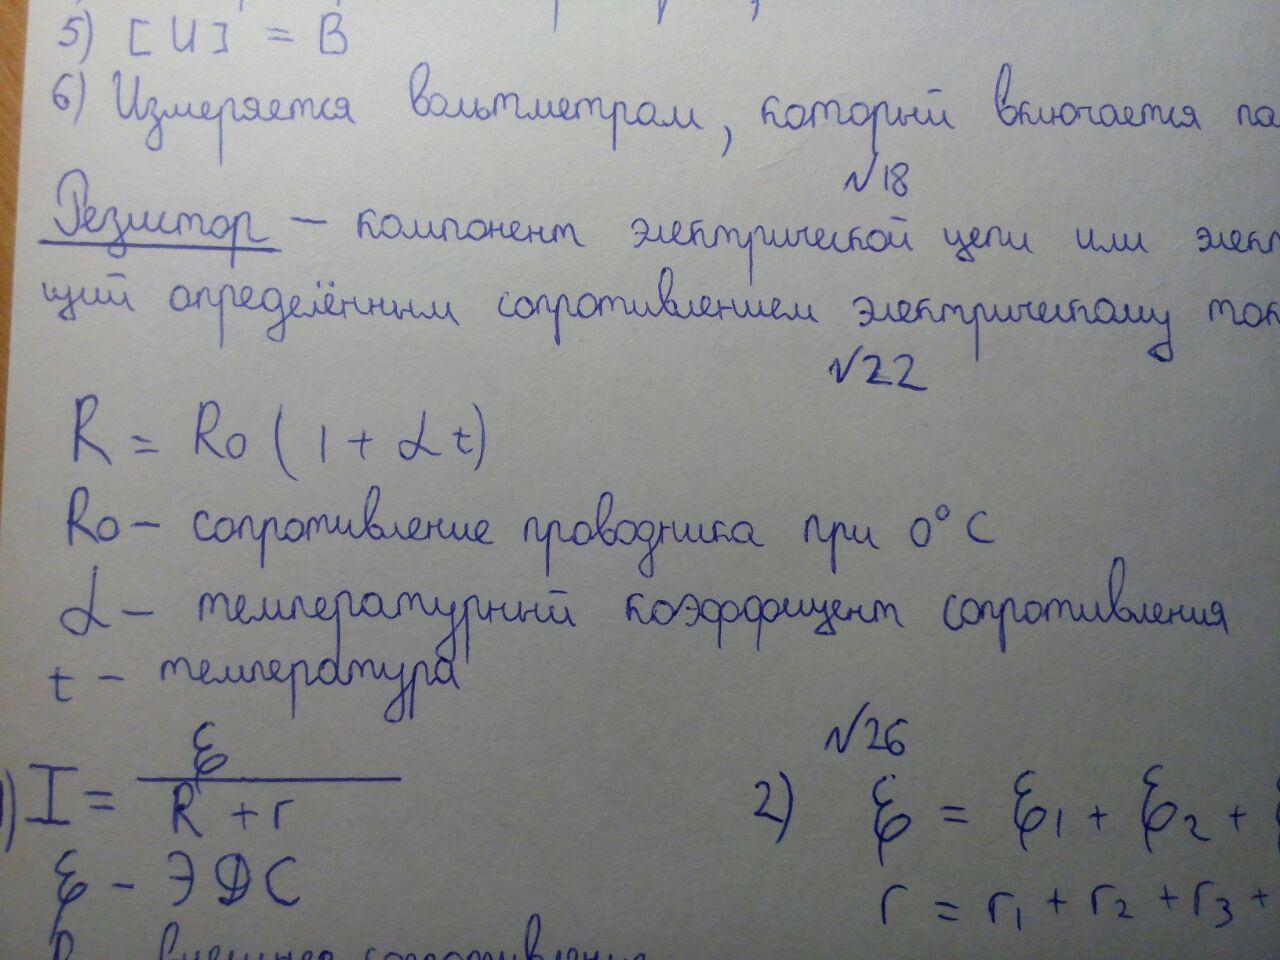 5) [U] = В
6) Измеряется вольтметрам, который включается па
№18
Резистор – компонент электрической цепи или элект
щий определённым сопротивлением электрическому ток
№22
R = R₀ (1 + αt)
R₀ – сопротивление проводника при 0°C
α – температурный коэффициент сопротивления
t – температура
№26
1) I = ℰ / (R + r)
ℰ – ЭДС
R – внешнее сопротивление
2) ℰ = ℰ₁ + ℰ₂ +
r = r₁ + r₂ + r₃ +